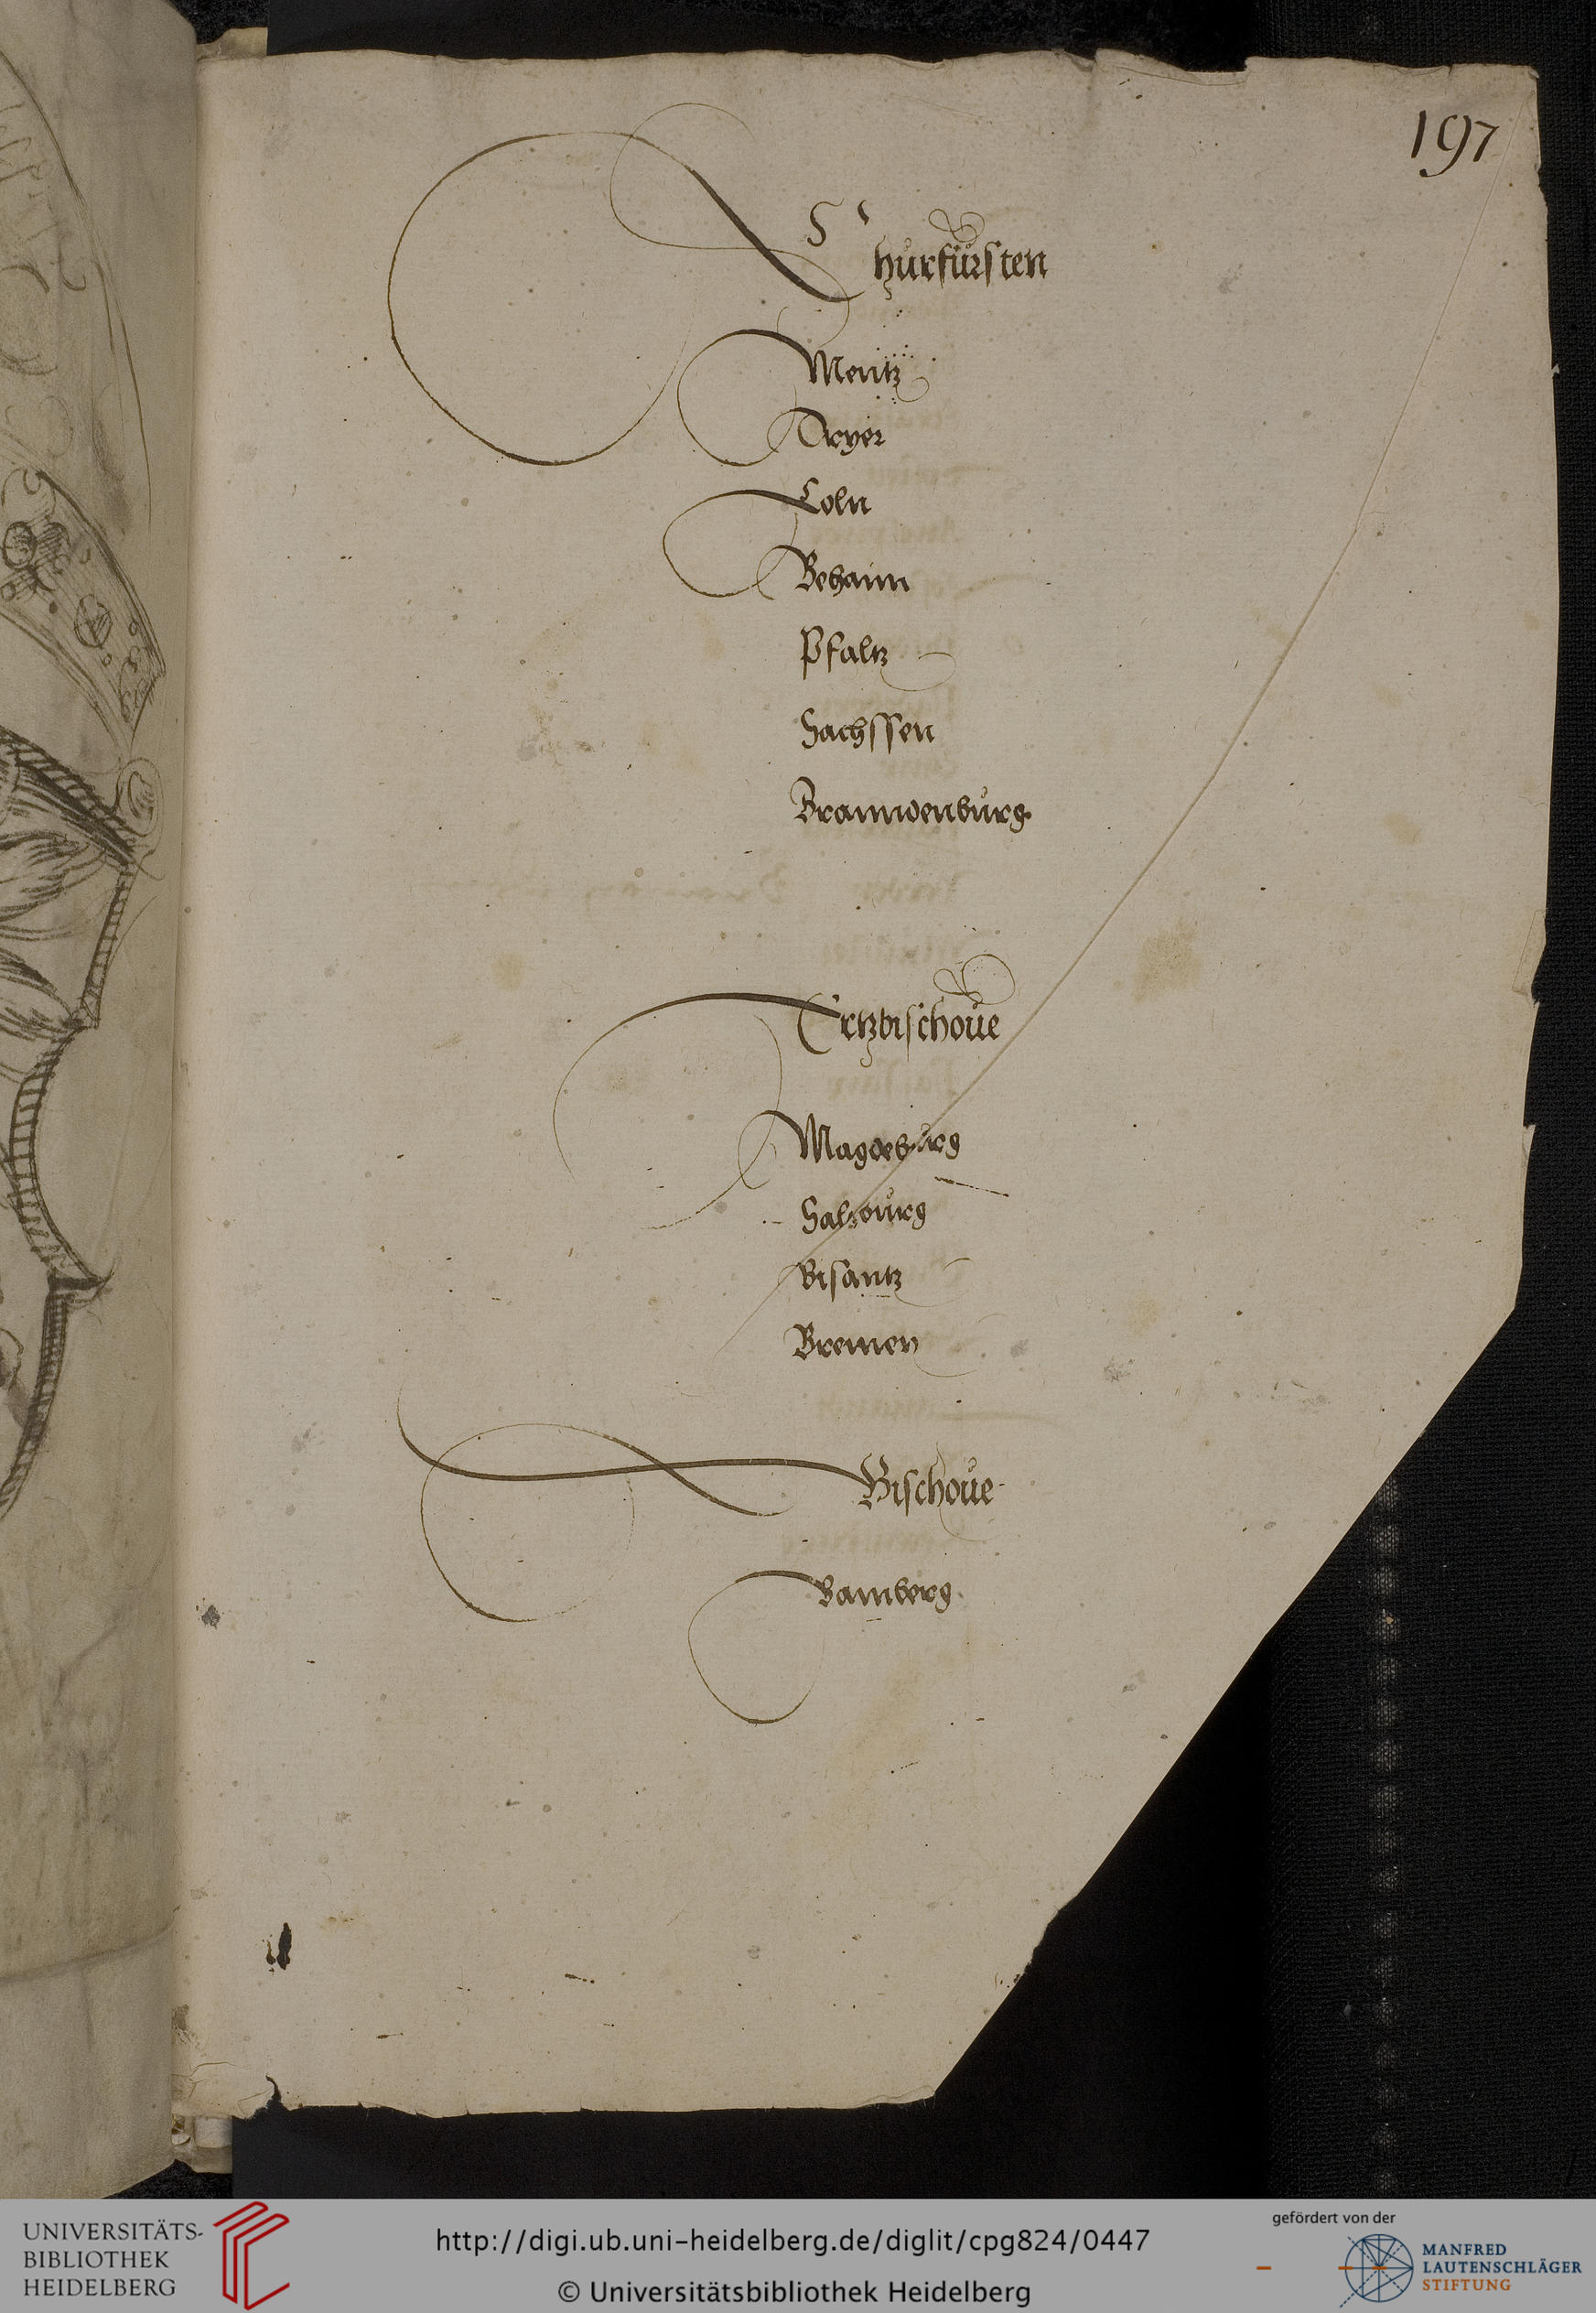 197
Churfürsten
Mentz
Tryer
Coln
Behaim
Pfaltz
Sachssen
Branndenburg
Ertzbischoue
Magdeburg
Saltzburg
Bisantz
Bremen
Bischoue
Bamberg
UNIVERSITÄTS-
BIBLIOTHEK
HEIDELBERG
http://digi.ub.uni-heidelberg.de/diglit/cpg824/0447
© Universitätsbibliothek Heidelberg
gefördert von der
MANFRED
LAUTENSCHLÄGER
STIFTUNG